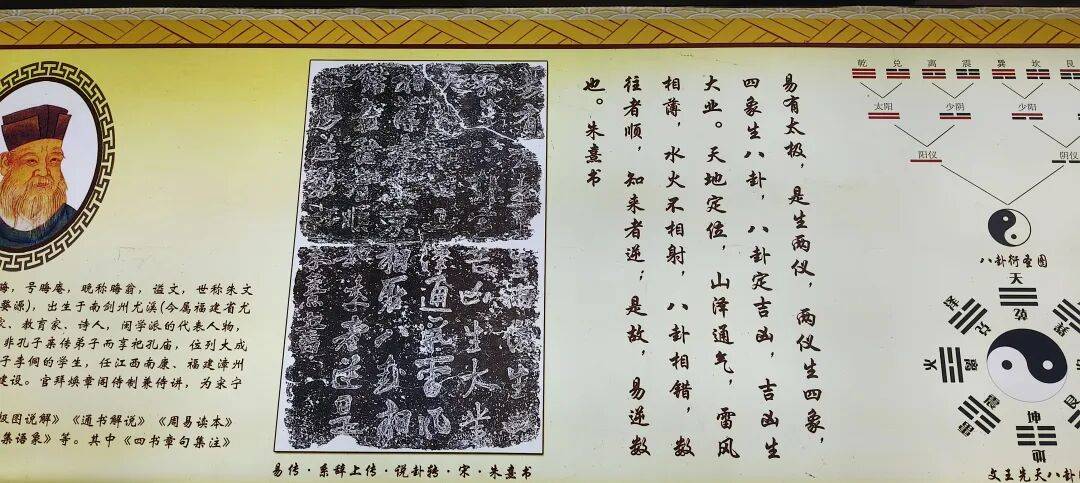 晦，号晦庵，晚称晦翁，谥文，世称朱文
婺源)，出生于南剑州尤溪(今属福建省尤
家、教育家、诗人，闽学派的代表人物，
非孔子亲传弟子而享祀孔庙，位列大成
子李侗的学生，任江西南康、福建漳州
建设。官拜焕章阁侍制兼侍讲，为宋宁
极图说解》《通书解说》《周易读本》
集语象》等。其中《四书章句集注》
吉凶生大业
泽通气雷风
者逆是
易传·系辞上传·说卦转·宋·朱熹书
易有太极，是生两仪，两仪生四象，
四象生八卦，八卦定吉凶，吉凶生
大业。天地定位，山泽通气，雷风
相薄，水火不相射，八卦相错，数
往者顺，知来者逆；是故，易逆数
也。朱熹书
乾 兑 离 震 巽 坎 艮
太阳 少阴 少阳
阳仪 阴仪
八卦衍圣图
天
乾
兑
火 離
震
坤
文王先天八卦